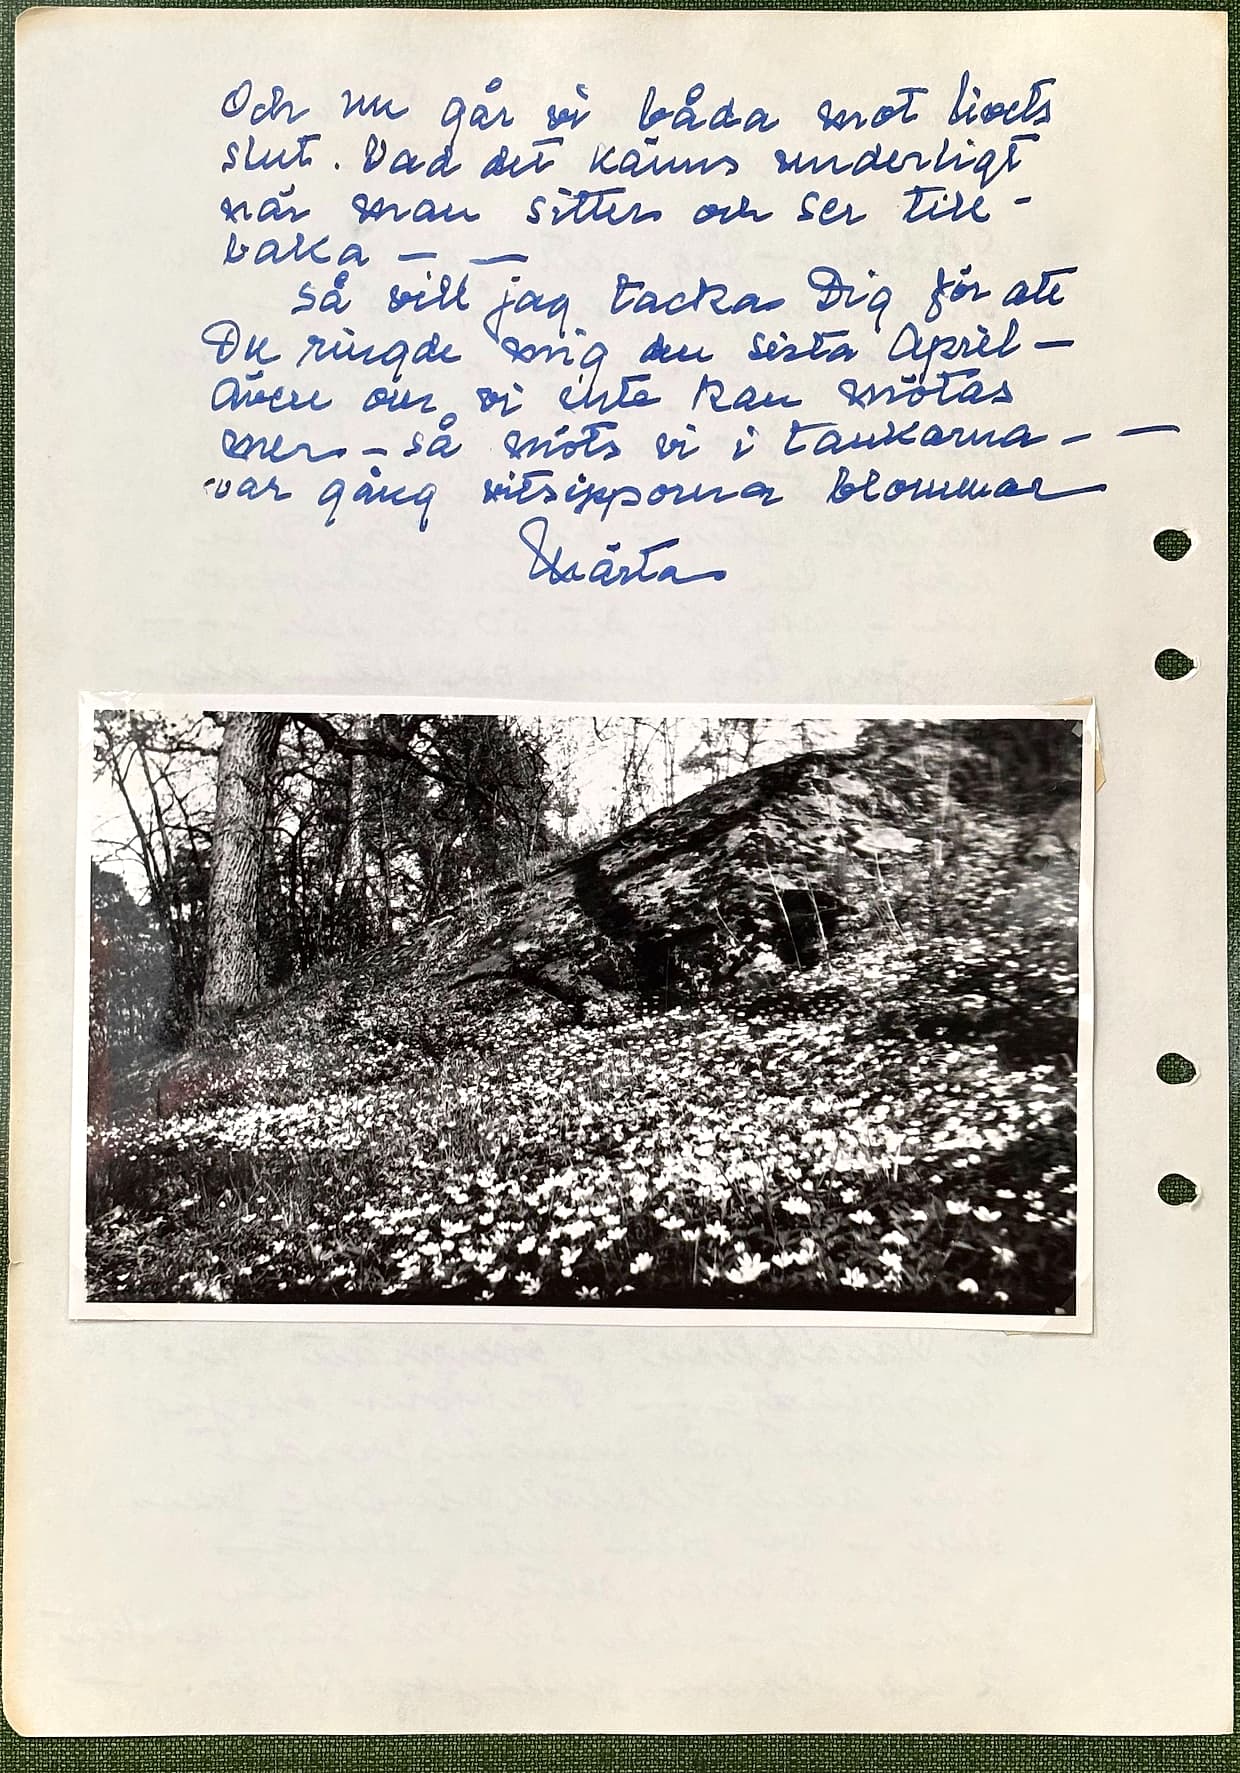 Och nu går vi båda mot livets
slut. Vad det känns underligt
när man sitter och ser till-
baka — —
Så vill jag tacka Dig för att
Du ringde mig den sista April —
Även om vi inte kan mötas
mer — så möts vi i tankarna — —
var gång vitsipporna blommar
Märta